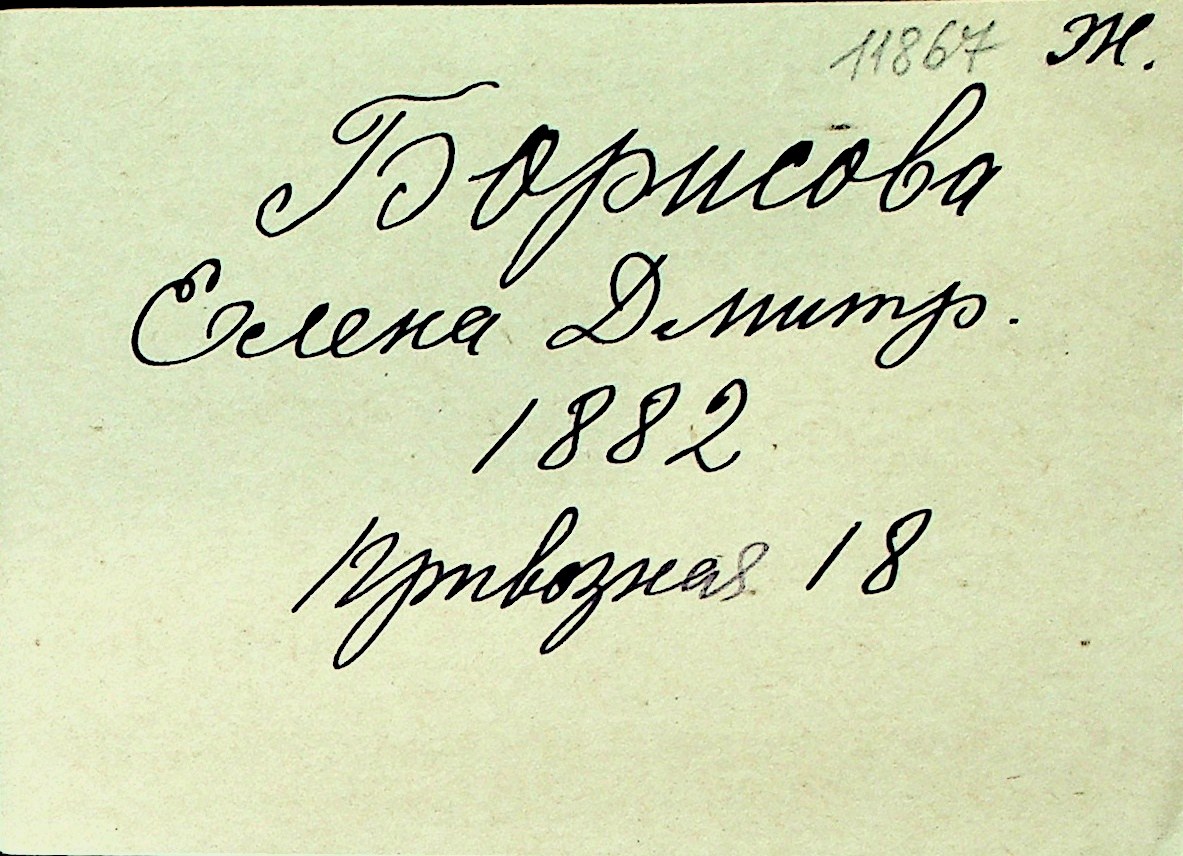 11867 Ж.
Борисова
Елена Дмитр.
1882
Привозная 18